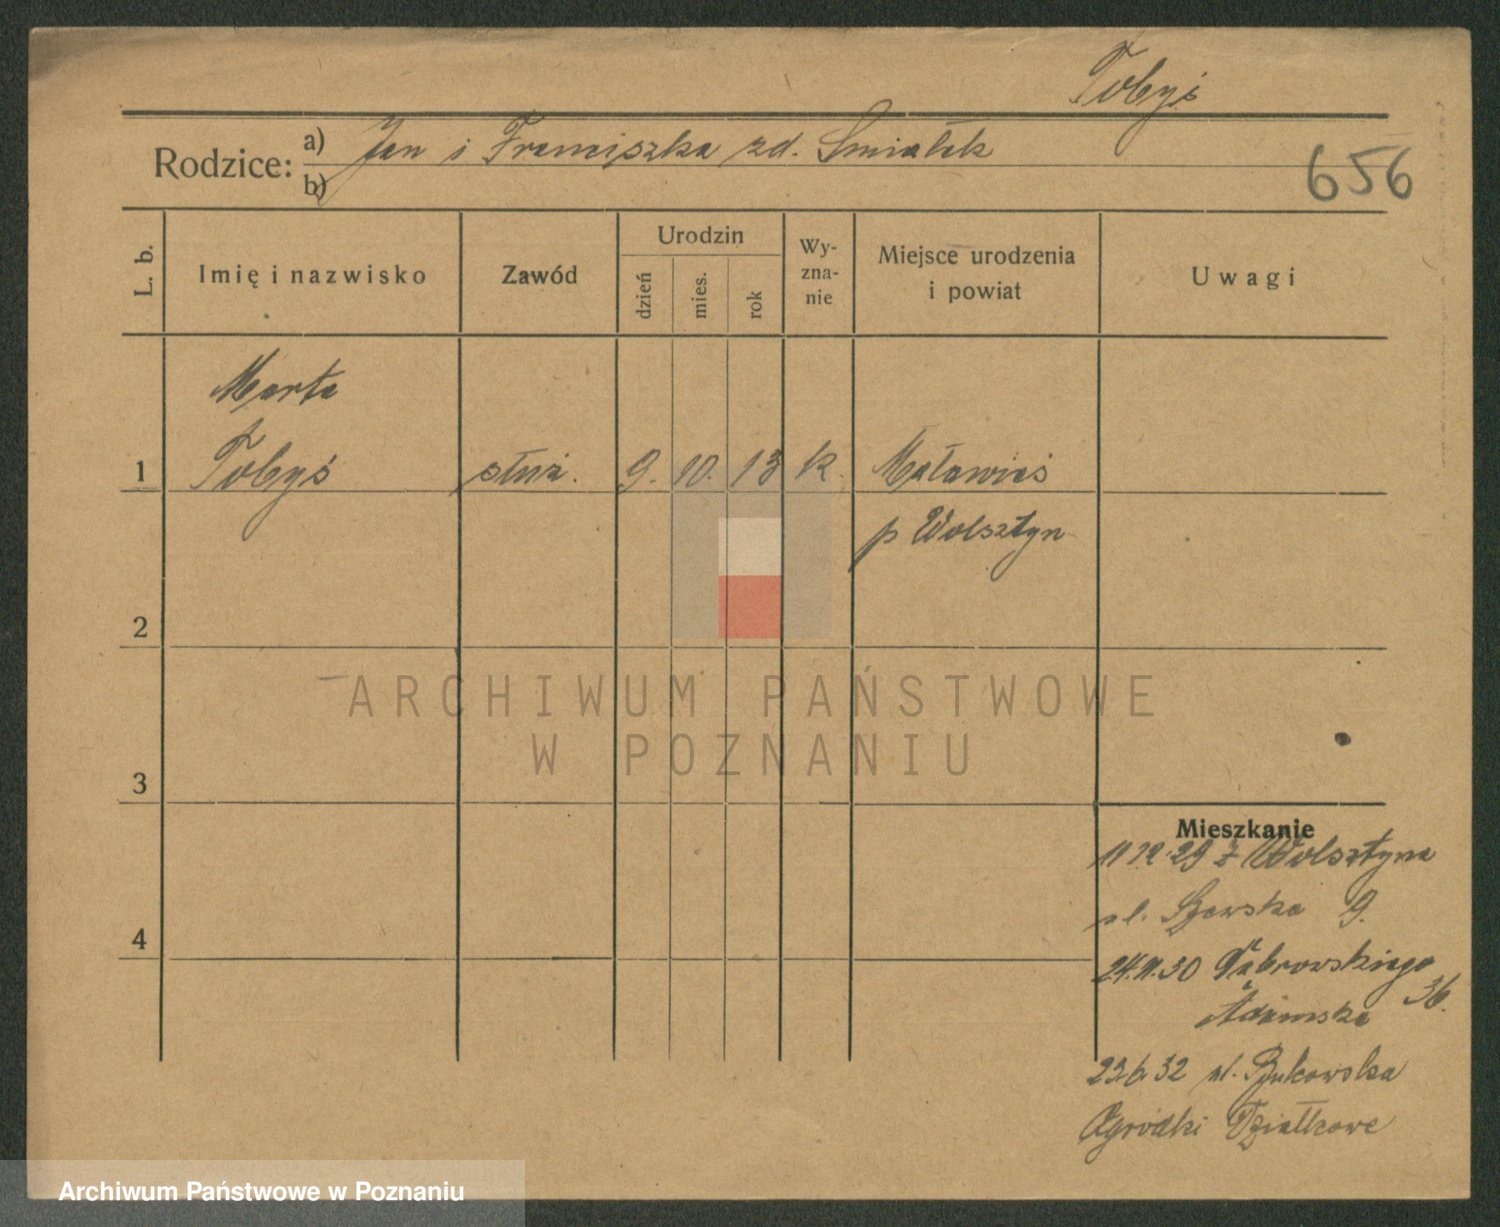 Tobyś
Rodzice: a) Jan i Franciszka zd. Śmiałek
b)
656
L. b.
Imię i nazwisko
Zawód
Urodzin
dzień
mies.
rok
Wy-
zna-
nie
Miejsce urodzenia
i powiat
Uwagi
Marta
1 Tobyś służ. 9. 10. 13 k. Maławieś
p Wolsztyn
2
3
4
ARCHIWUM PAŃSTWOWE
W POZNANIU
Mieszkanie
29 z Wolsztyna
ul. Szewska 9.
24.11.30 Dąbrowskiego
36.
Adamska
23.6.32 ul. Bukowska
Ogródki Działkowe
Archiwum Państwowe w Poznaniu